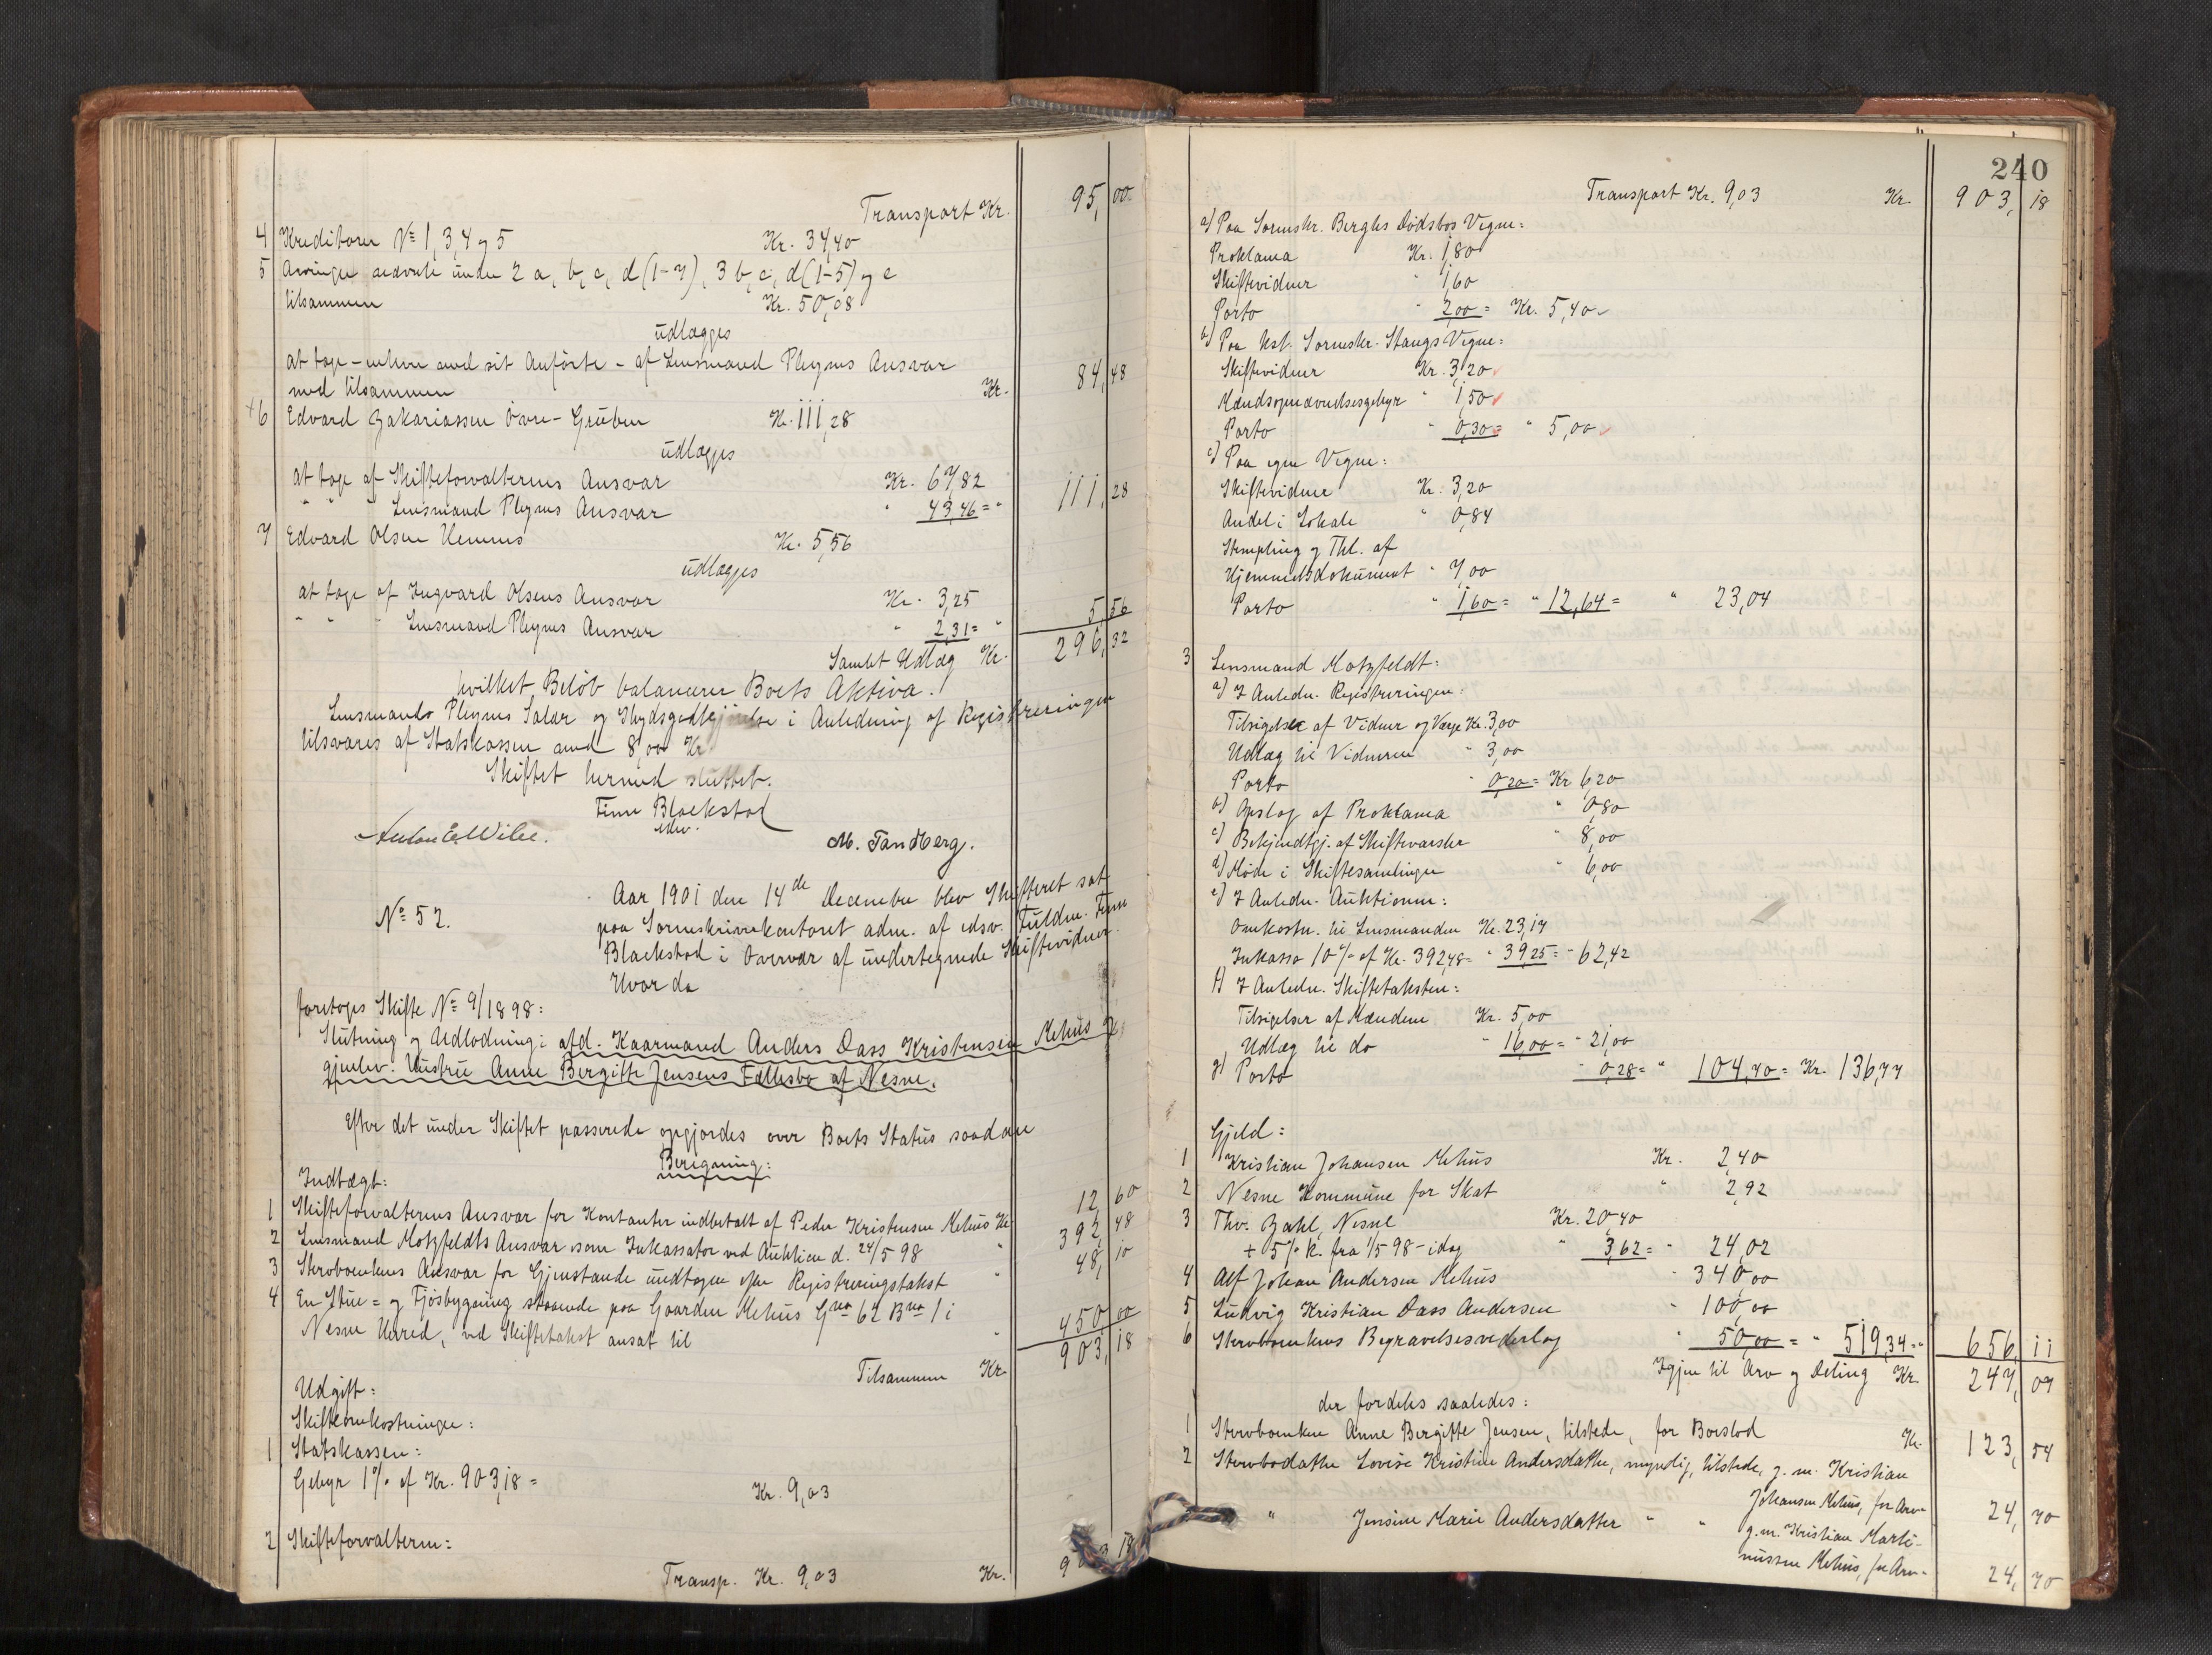 Transport Kr. 95,00
4 Kreditorer No 1, 3, 4 og 5 Kr. 34,40
5 Arvinger under 2 a, b, c, d (1-7), 3 b, c, d (1-5) og e
tilsammen Kr. 50,08
udlægges
at tage - enhver med sit Anførte - af Lensmand Pleyms Ansvar
med tilsammen Kr. 84,48
+6 Edvard Zakariassen Øvre-Gruben Kr. 111,28
udlægges
at tage af Skifteforvalterens Ansvar Kr. 67,82
" " " Lensmand Pleyms Ansvar " 43,46 = " 111,28
7 Edvard Olsen Hemnes Kr. 5,56
udlægges
at tage af Ingvard Olsens Ansvar Kr. 3,25
" " " Lensmand Pleyms Ansvar " 2,31 = " 5,56
Samlet Udlæg Kr. 296,32
hvilket Beløb balancerer Boets Aktiva.
Lensmand Pleyms Salær og Skydsgodtgjørelse i Anledning af Registreringen
tilsvares af Statskassen med 8,00 Kr.
Skiftet hermed sluttet.
Finn Blackstad
edsv.
Anton E. Wilee. M. Tandberg.
No 52.
Aar 1901 den 14de December blev Skifteret sat
paa Sorenskriverkontoret adm. af edsv. Fuldm. Finn
Blackstad i Overvær af undertegnede Skiftevidner.
Hvor da
foretoges Skifte No 9/1898:
Slutning og Udlodning i afd. Kaarmand Anders Dass Kristensen Mehus og
gjenlev. Hustru Anne Bergitte Jensens Fællesbo af Nesne.
Efter det under Skiftet passerede opgjordes over Boets Status saadan
Beregning:
Indtægt:
1 Skifteforvalterens Ansvar for Kontanter indbetalt af Peder Kristensen Mehus Kr. 12,60
2 Lensmand Motzfeldts Ansvar som Inkassator ved Auktion d. 24/5 98 " 392,48
3 Stervboenkens Ansvar for Gjenstande undtagen efter Registreringstakst " 48,10
4 En Stue- og Fjøsbygning staaende paa Gaarden Mehus Gno 62 Bno 1 i
Nesne Herred, ved Skiftetakst ansat til " 450,00
Tilsammen Kr. 903,18
Udgift:
Skifteomkostninger:
1 Statskassen:
Gebyr 1% af Kr. 903,18 = Kr. 9,03
2 Skifteforvalteren:
Transp. Kr. 9,03 Kr. 903,18
240
Transport Kr. 9,03 Kr. 903,18
a) Paa Sorenskr. Berghs Dødsbos Vegne:
Proklama Kr. 1,80
Skiftevidner " 1,60
Porto " 2,00 = Kr. 5,40
b) Paa kst. Sorenskr. Stangs Vegne:
Skiftevidner Kr. 3,20
Mændsopnævnelsesgebyr " 1,50
Porto " 0,30 = " 5,00
c) Paa egne Vegne:
Skiftevidner Kr. 3,20
Andel i Lokale " 0,84
Stempling og Thl. af
Hjemmelsdokument " 7,00
Porto " 1,60 = " 12,64 = " 23,04
3 Lensmand Motzfeldt:
a) I Anledn. Registreringen:
Tilsigelse af Vidner og Værge Kr. 3,00
Udlæg til Vidnerne " 3,00
Porto " 0,20 = Kr 6,20
b) Opslag af Proklama " 0,80
c) Bekjendtgj. af Skiftevarsler " 8,00
d) Møde i Skiftesamlinger " 6,00
e) I Anledn. Auktionen:
Omkostn. til Lensmanden Kr. 23,17
Inkasso 10% af Kr. 392,48 = " 39,25 = " 62,42
f) I Anledn. Skiftetaksten:
Tilsigelser af Mændene Kr. 5,00
Udlæg til do " 16,00 = " 21,00
g) Porto " 0,28 = " 104,70 = Kr. 136,77
Gjeld:
1 Kristian Johansen Mehus Kr. 2,40
2 Nesne Kommune for Skat " 2,92
3 Thv. Zahl, Nesne Kr. 20,40
+ 5% R. fra 1/5 98 - idag " 3,62 = " 24,02
4 Alf Johan Andersen Mehus " 340,00
5 Ludvig Kristian Dass Andersen " 100,00
6 Stervboenkens Begravelsesvederlag " 50,00 = " 519,34 = " 656,11
Igjen til Arv og Deling Kr. 247,07
der fordeles saaledes:
1 Stervboenken Anne Bergitte Jensen, tilstede, for Boeslod Kr. 123,54
2 Stervbodatter Lovise Kristine Andersdatter, myndig, tilstede, g. m. Kristian
Johansen Mehus, for Arv " 24,70
" Jensine Marie Andersdatter " " g. m. Kristian Marti-
nussen Mehus, for Arv " 24,70